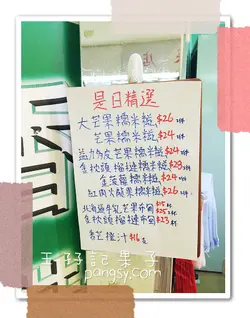 是日精選
大芒果糯米糍 $26 2件
芒果糯米糍 $24 2件
益力多皮芒果糯米糍 $24 2件
金枕頭榴槤糯米糍 $28 2件
金菠蘿糯米糍 $24 2件
紅肉火龍果糯米糍 $26 2件
芒果布甸
金枕頭榴槤布甸 $23 1杯
香芒撈汁 $16
王孖記果子
pangsy.com